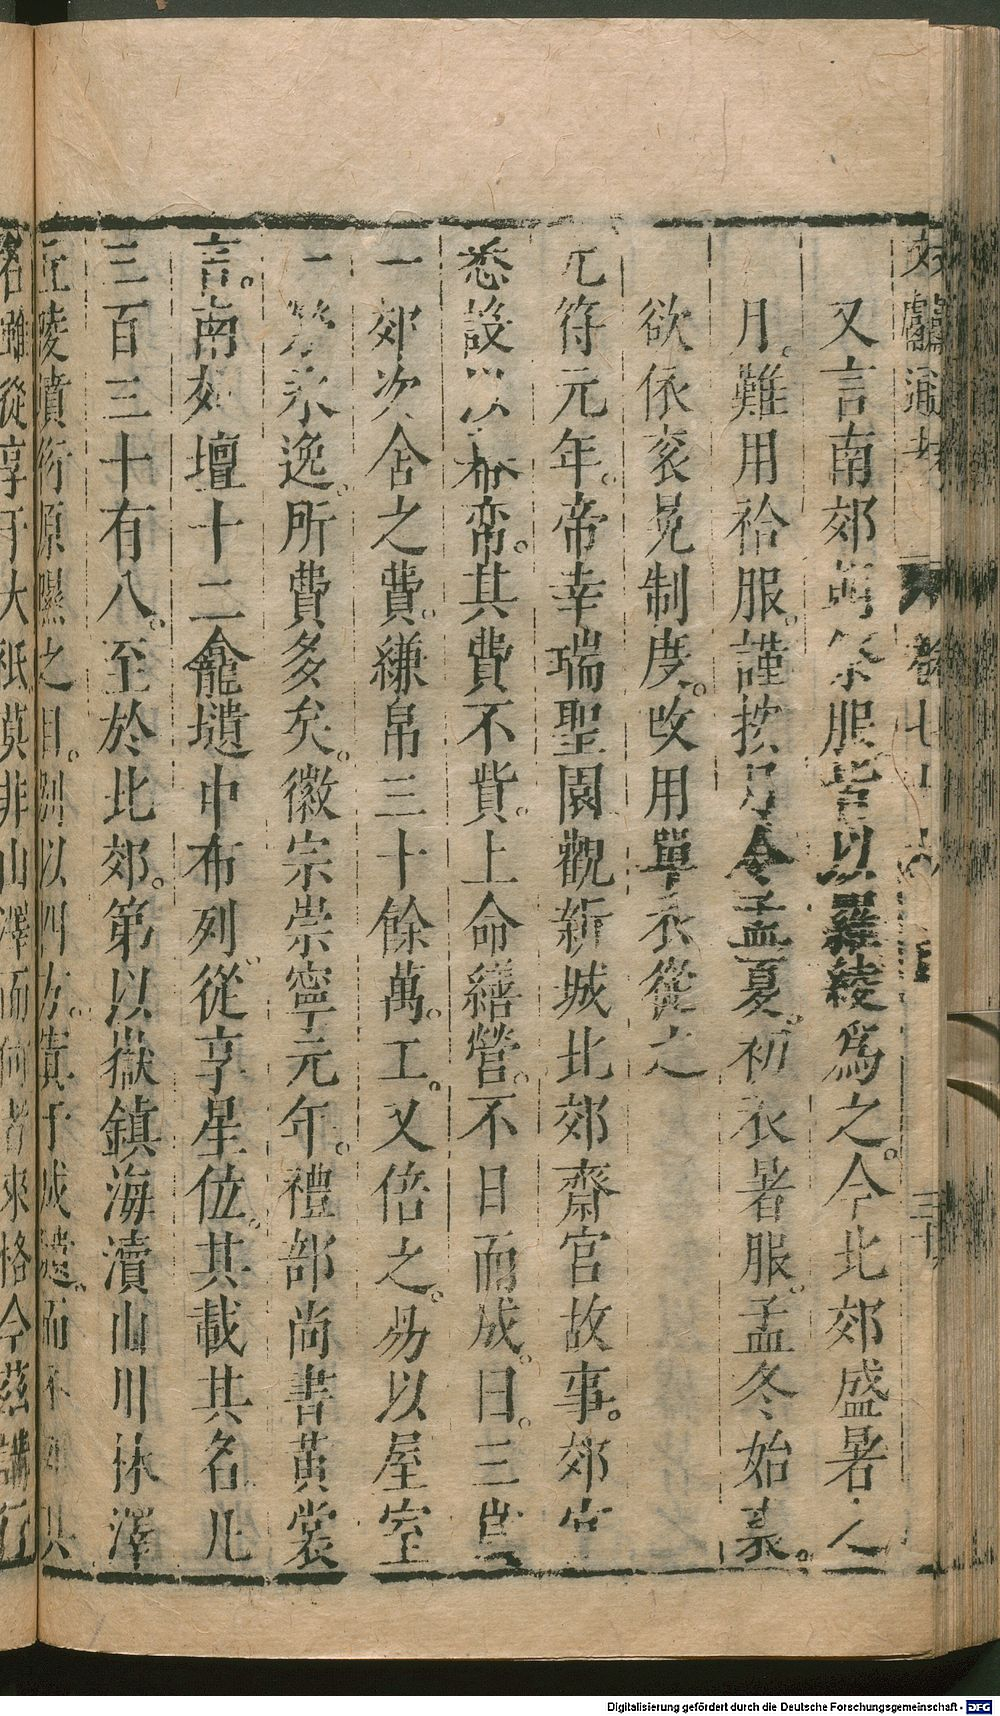 文獻通考 卷七十六 三十
又言南郊朝祭服皆以羅綾為之。今北郊盛暑之
月。難用袷服。謹按月令孟夏。初衣暑服。孟冬始裘。
欲依袞冕制度。改用單衣從之
元符元年。帝幸瑞聖園觀新城北郊齋宮故事。郊宮
悉設以布帟。其費不貲。上命繕營。不日而成。曰。三歲
一郊次舍之費。縑帛三十餘萬。工。又倍之。易以屋室
一勞永逸。所費多矣。徽宗崇寧元年。禮部尚書黃裳
言。南郊壇十二龕壝中布列從享星位。其載其名凡
三百三十有八。至於北郊。第以嶽鎮海瀆山川林澤
丘陵墳衍原隰之目。別以四方。實予成遺。而不 其
名雖從享于大祇莫非山澤而何者來格今茲講
Digitalisierung gefördert durch die Deutsche Forschungsgemeinschaft - DFG